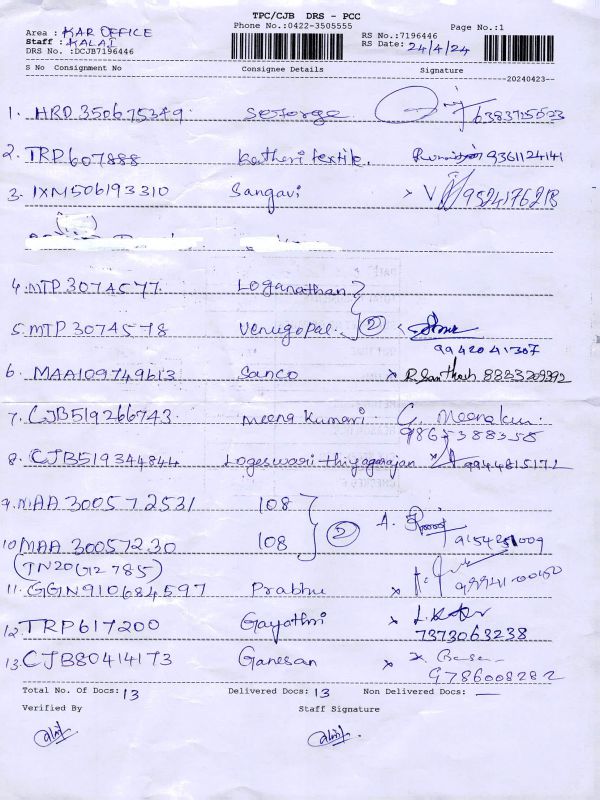 TPC/CJB DRS - PCC
Phone No.:0422-3505555
Page No.:1
Area : KAR OFFICE
Staff : KALAI
DRS No. :DCJB7196446
RS No.:7196446
RS Date: 24/4/24
S No Consignment No Consignee Details Signature
20240423
1. HRD350675349. Seforge 6383715523
2. TRP607888 Kotheri textile. 9361124141
3. IXM506193310 Sangavi × 9524176218
4. MTP3074577. Loganathan
5. MTP3074578 Venugopal. (2)
9942041307
6 MAA109749613 Sanco × R. Santhosh 8883209392
7. CJB519266743 Meena Kumari C. Meenakum.
9865388358
8. CJB519344844 Logeswari thiyagarajan × 9944815171
9. MAA 300572531 108
(2) A.
10. MAA 30057230 108
(TN20G2785)
11. GGN910684597 Prabhu ×
12. TRP617200 Gayathri ×
7373063238
13. CJB80414173 Ganesan ×
9786008282
Total No. Of Docs: 13 Delivered Docs: 13 Non Delivered Docs: —
Verified By Staff Signature